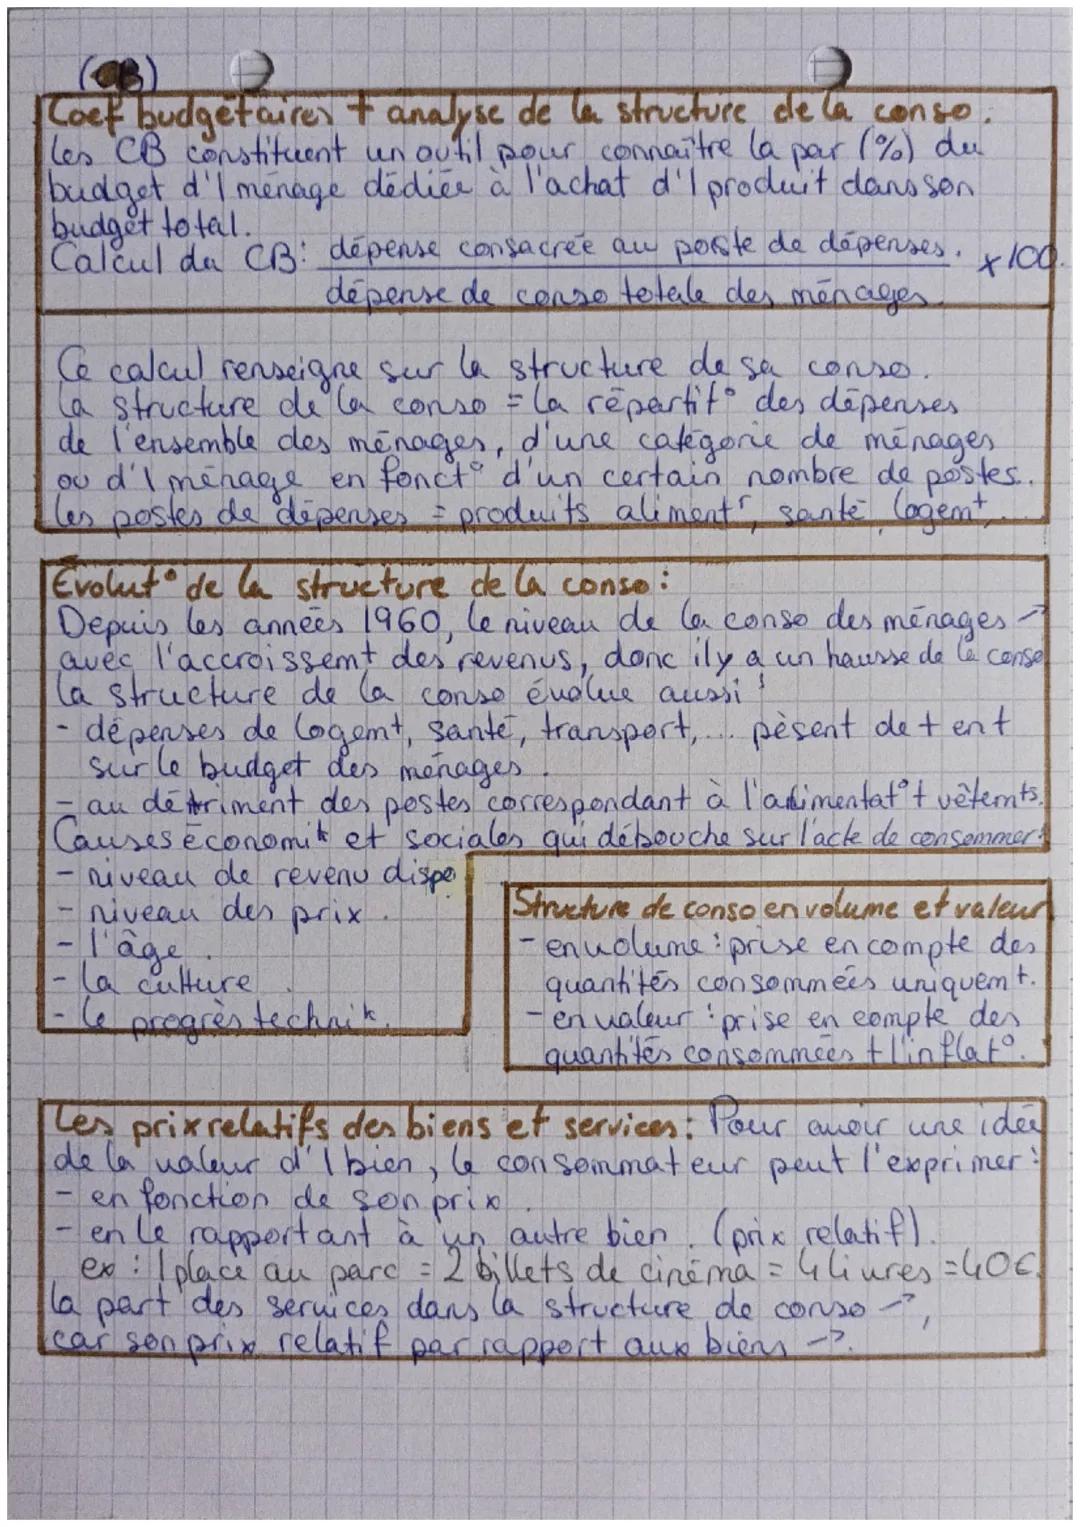 (CB)
Coef budgétaires + analyse de la structure de la conso.
Les CB constituent un outil pour connaître la par (%) du
budget d'1 ménage dédiée à l'achat d'1 produit dans son
budget total.
Calcul du CB: dépense consacrée au poste de dépenses. x100.
dépense de conso totale des ménages.
Ce calcul renseigne sur la structure de sa conso.
La structure de la conso = la répartit° des dépenses
de l'ensemble des ménages, d'une catégorie de ménages
ou d'1 ménage en fonct° d'un certain nombre de postes.
Les postes de dépenses = produits alimentr, santé, logemt,...
Evolut° de la structure de la conso :
Depuis les années 1960, le niveau de la conso des ménages ↗
avec l'accroissemt des revenus, donc il y a un hausse de la conso
La structure de la conso évolue aussi :
- dépenses de logemt, santé, transport,... pèsent de + en +
sur le budget des ménages.
- au détriment des postes correspondant à l'alimentat° + vêtemts.
Causes économik et sociales qui débouche sur l'acte de consommer:
- niveau de revenu dispo
- niveau des prix.
- l'âge.
- la culture.
- le progrès technik.
Structure de conso en volume et valeur
- en volume : prise en compte des
quantités consommées uniquemt.
- en valeur : prise en compte des
quantités consommées + l'inflat°.
Les prix relatifs des biens et services : Pour avoir une idée
de la valeur d'1 bien, le consommateur peut l'exprimer :
- en fonction de son prix.
- en le rapportant à un autre bien. (prix relatif).
ex : 1 place au parc = 2 billets de cinéma = 4 livres = 40€.
La part des services dans la structure de conso ↗,
car son prix relatif par rapport aux biens ↗.